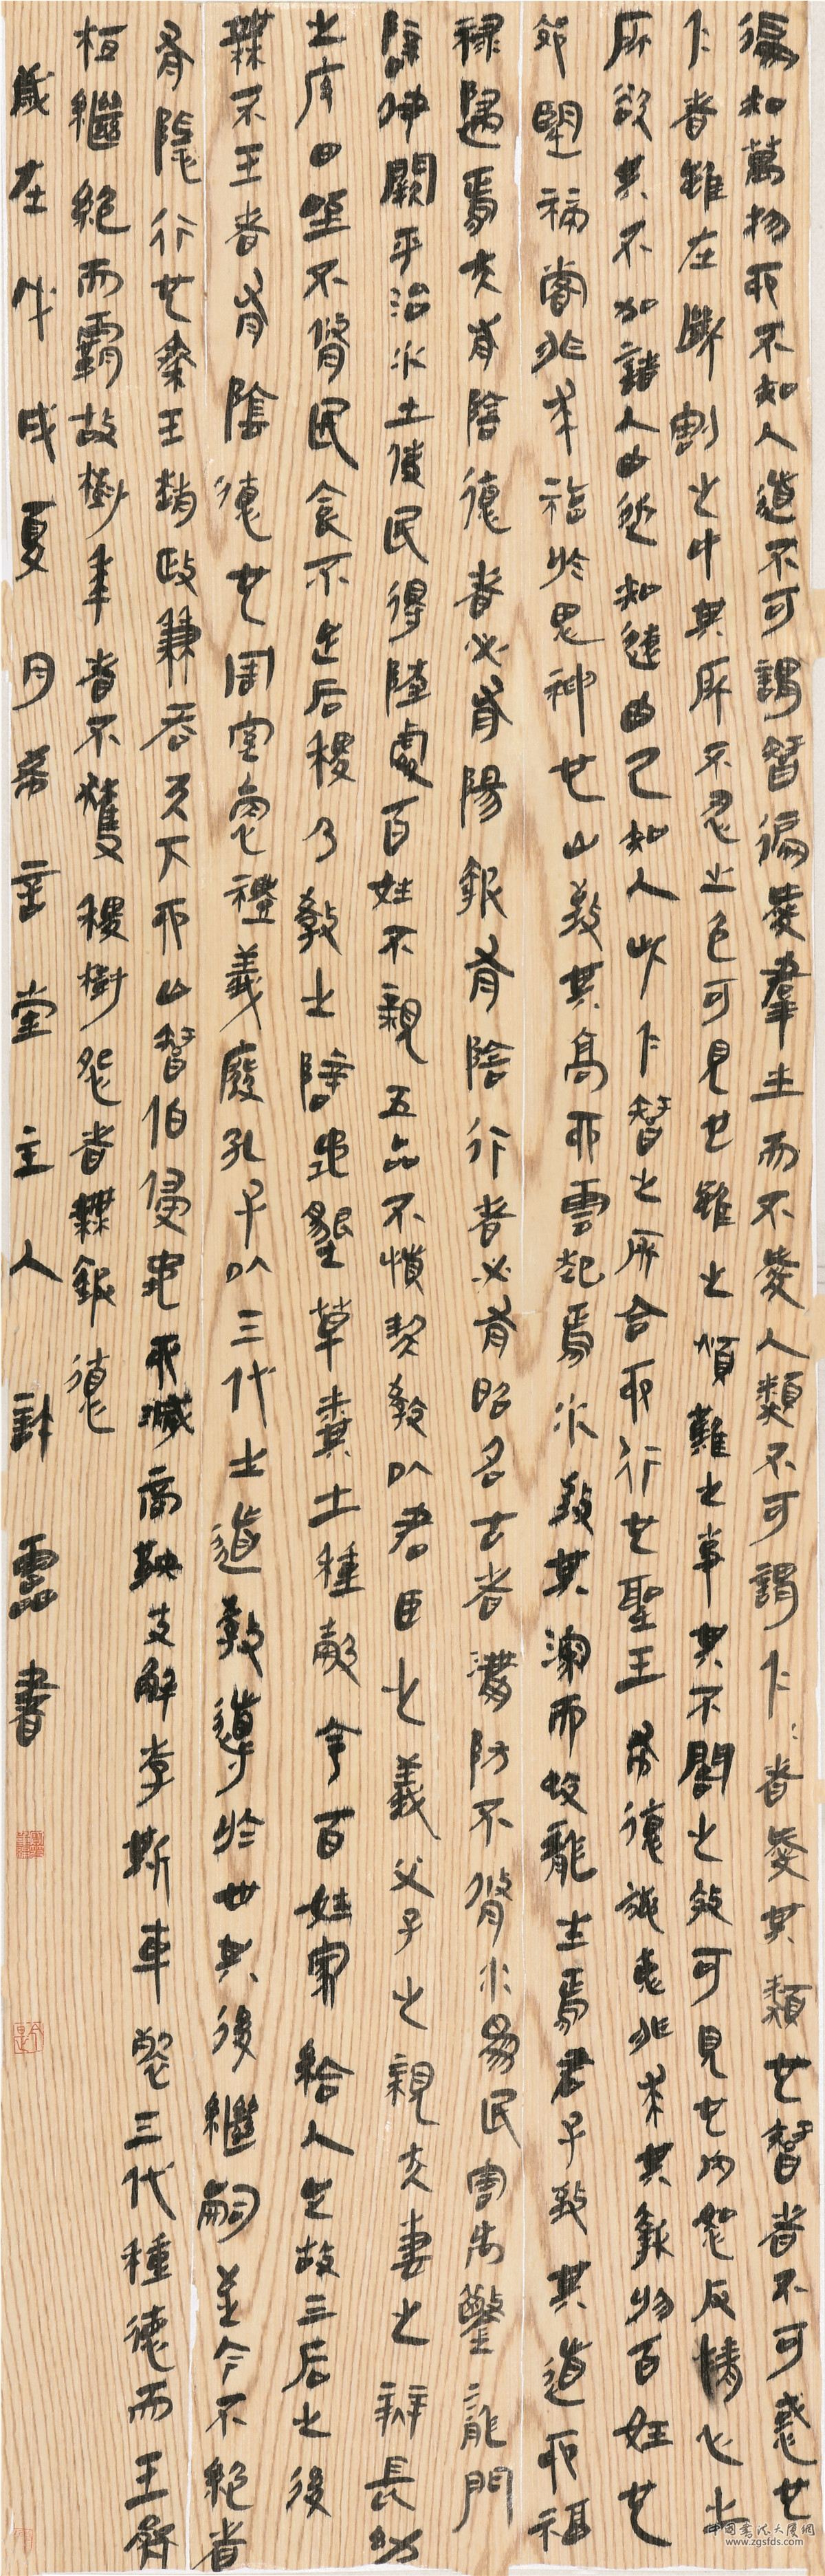 徧知萬物而不知人道不可謂智徧愛羣生而不愛人類不可謂仁〻者愛其類也智者不可惑也
仁者雖在斷割之中其所不忍之色可見也雖之煩難之事其不闇之效可見也內恕反情心之
所欲其不加諸人由近知遠由己知人此仁智之所合而行也聖王布德施惠非求其報於百姓也
郊望禘嘗非求福於鬼神也山致其高而雲起焉水致其深而蛟龍生焉君子致其道而福
祿歸焉夫有陰德者必有陽報有陰行者必有昭名古者溝防不脩水為民害禹鑿龍門
辟伊闕平治水土使民得陸處百姓不親五品不慎契教以君臣之義父子之親夫妻之辯長幼
之序田野不脩民食不足后稷乃教之辟地墾草糞土種穀令百姓家給人足故三后之後
無不王者有陰德也周室衰禮義廢孔子以三代之道教導於世其後繼嗣至今不絕者
有隱行也秦王趙政兼吞天下而亡智伯侵地而滅商鞅支解李斯車裂三代種德而王齊
桓繼絕而霸故樹黍者不獲稷樹怨者無報德
歲在戊戌夏月希言堂主人許書
中国书法大厦网
www.zgsfds.com